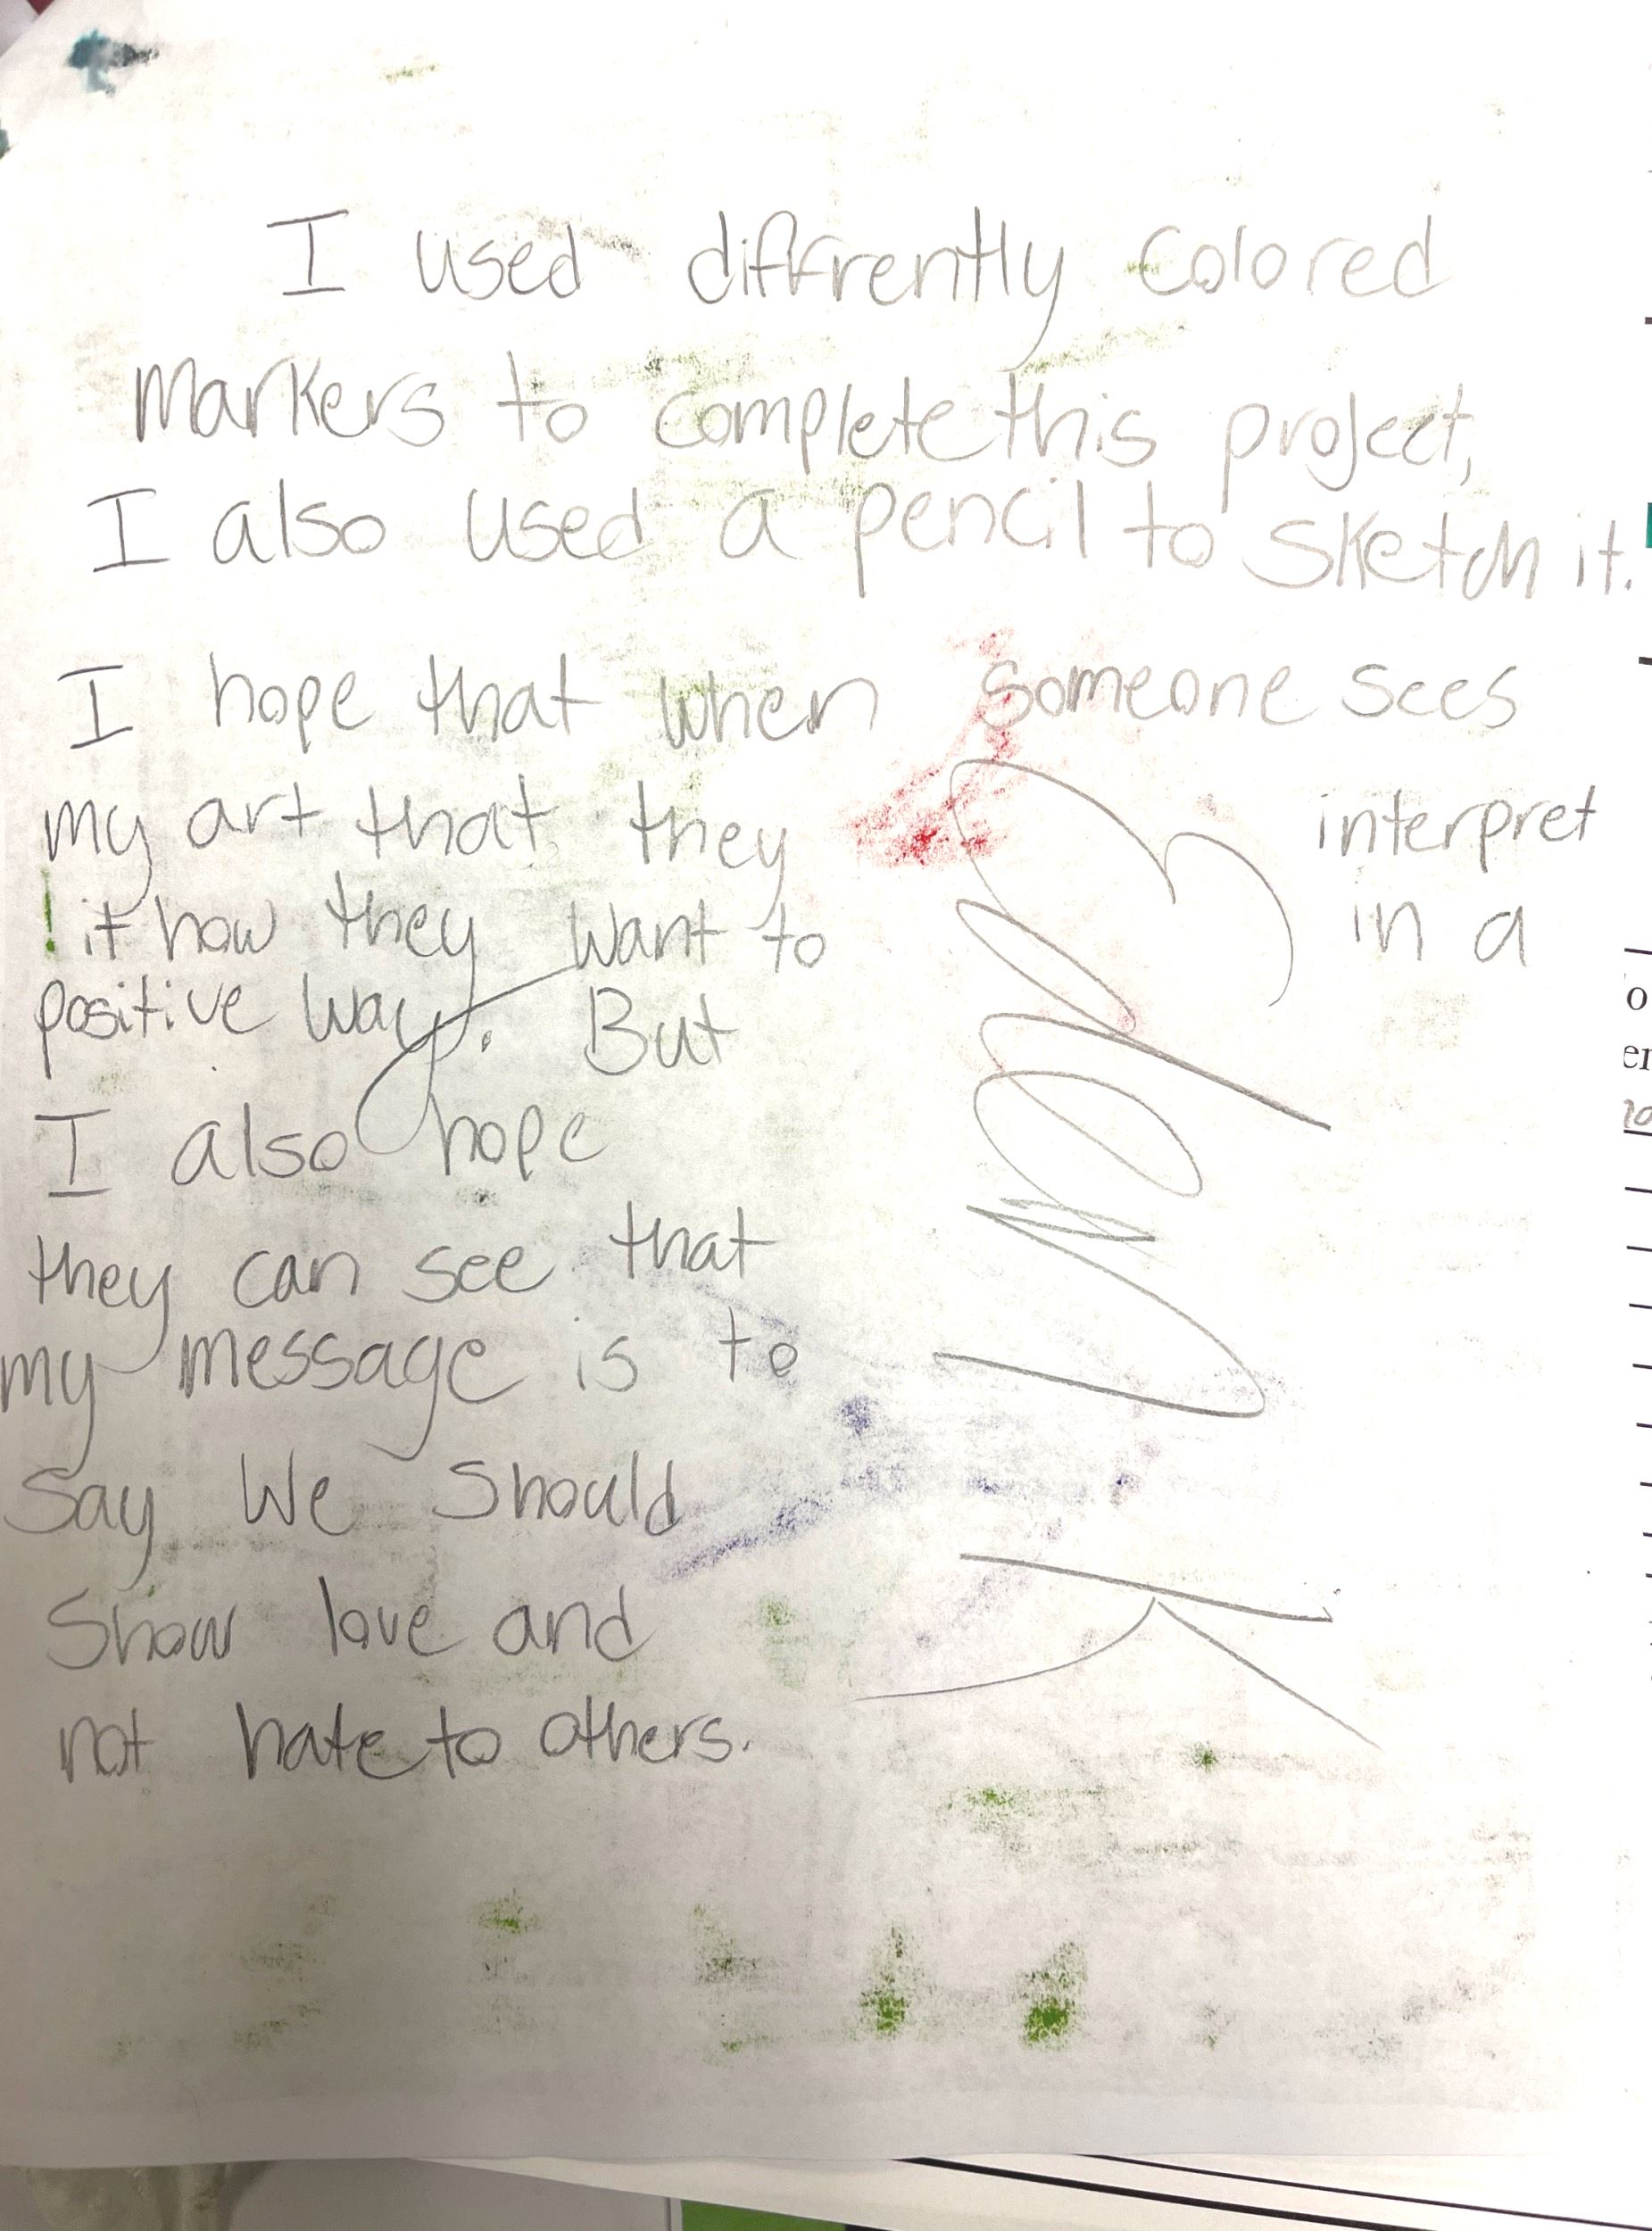 I used diffrently colored
markers to complete this project,
I also used a pencil to sketch it.
I hope that when someone sees
my art that they interpret
it how they want to in a
positive way. But
I also hope
they can see that
my message is to
say we should
show love and
not hate to others.
K